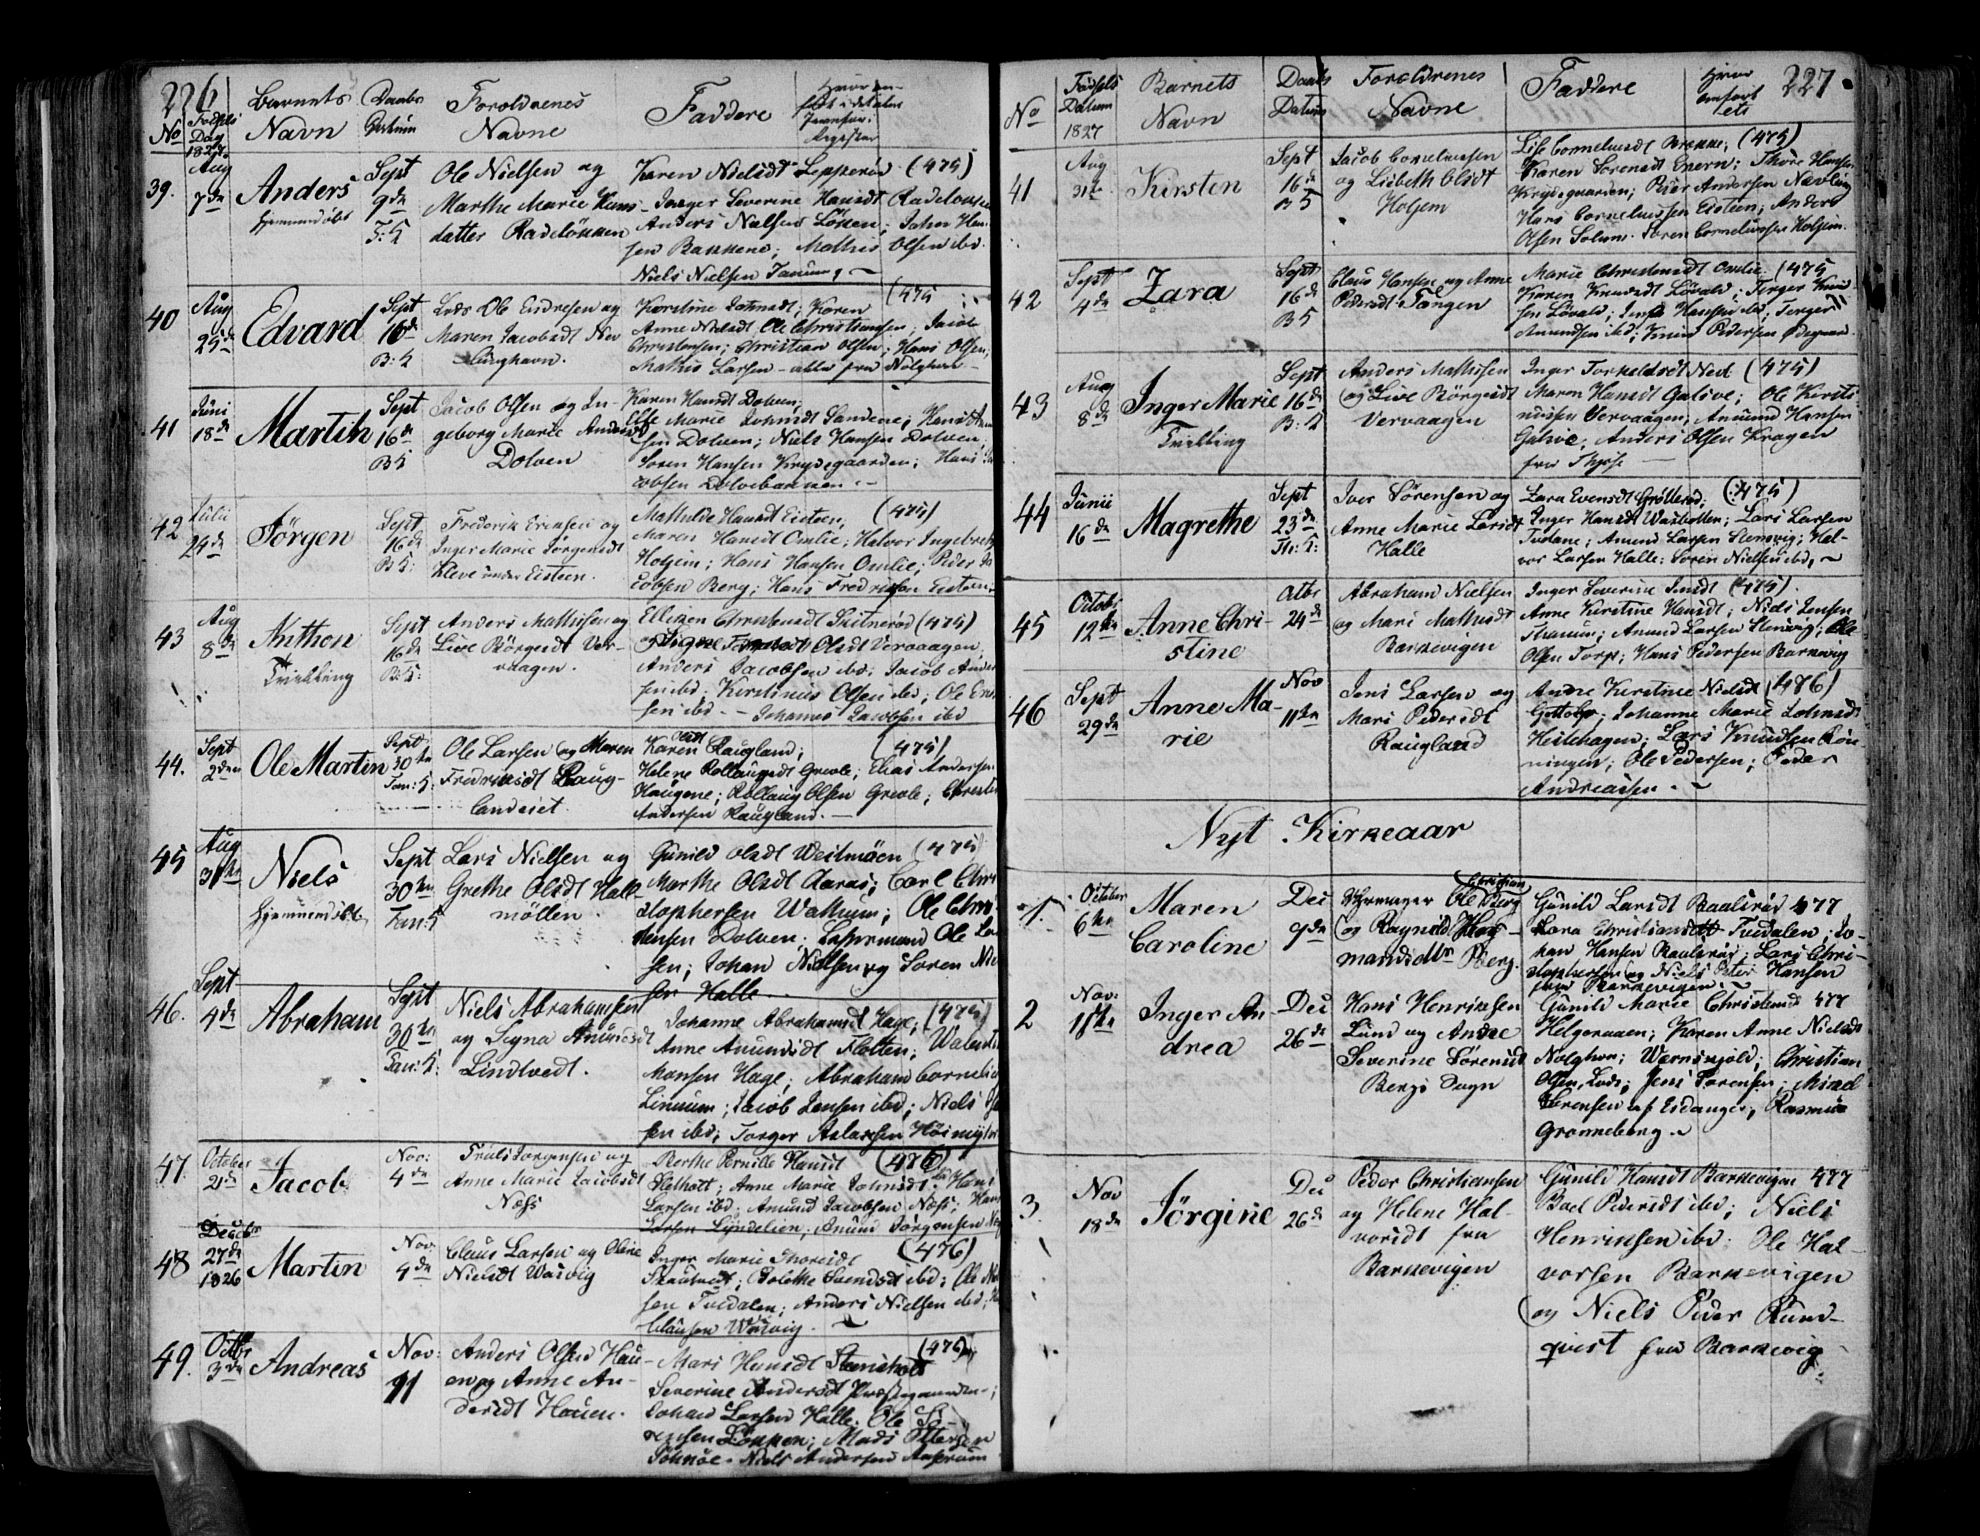 226
No
Fødsels Dag 1827.
Barnets Navn
Daabs Datum
Forældrenes Navne
Faddere
39.
Aug 7de
Anders
hjemmedøbt
Sept 9de
T: K
Ole Nielsen og
Marthe Marie Hans-
datter Radeløkken
Karen Nielsdt Lepperød (475)
Inger Severine Hansdt Radeløkken
Anders Nielsen Løken; Johan Han-
sen Bakkene; Mathis Olsen ibd.
Niels Nielsen Tanum,
40
Aug 25de
Edvard
Sept 16de
B: K
Lods Ole Endresen og
Maren Jacobsdt Nev
lunghavn.
Kirstine Johnsdt; Karen (475
Anne Nielsdt Ole Christiansen; Jacob
Christensen; Christian Olsen; Hans Olsen;
Mathis Larsen - alle fra Nålghavn
41
Juni 18de
Martin
Sept 16de
B K
Jacob Olsen og In-
geborg Marie Andersdt
Dolven
Karen Hansdt Dolven;
Else Marie Johnsdt Sandene; Hans Han
sen Dolven; Niels Hansen Dolven;
Søren Hansen Krydsgaarden; Hans Ja
cobsen Dolvebakken
42
Julii 24de
Jørgen
Sept 16de
B K:
Frederik Evensen og
Inger Marie Jørgensdt
Kleve under Eisteen.
Mathilde Hansdt Eisteen; (475)
Maren Hansdt Omlie; Halvor Ingebreth
Holjem; Hans Hansen Omlie; Peder Ja
cobsen Berg; Hans Fredriksen Eisteen
43
Aug 8de
Anthon
Tvilling
Sept 16de
B: K:
Anders Mathisen og
Live Börgesdt Ver-
vaagen.
Elleken Christensdt Skitnerød (475)
og Signe Olsdt Vervaagen,
Anders Jacobsen ibd; Jacob Ander
sen ibd; Kirstinus Olsen ibd; Ole En
sen ibd. - Johannes Jacobsen ibd
44.
Sept 2den
Ole Martin
Sept 30te
Tan: K
Ole Larsen og Maren
Fredriksdt Raug-
landeiet
Karen Olsdt Raugland; (475)
Helene Rollaugsdt Greole; Elias Andersen
Haugene; Rollaug Olsen Greole; Christen
Andersen Raugland.
45
Aug 31te
Niels
hjemmedøbt
Sept 30te
Tan: K
Lars Nielsen og
Grethe Olsdt Hall-
möllen.
Gunild Olsdt Weilmöen (475)
Marthe Olsdt Aaras; Carl Chri
stophersen Wallum; Ole Chri-
stensen Dolven; Ole La
sen; Johan Nielsen og Søren Niel
sen Halle.
46.
Sept 4de
Abraham
Sept 30te
Tan: K:
Niels Abrahamsen
og Signa Amundsdt
Lindtvedt.
Johanne Abrahamsdt Hage; (475)
Anne Amundsdt Flotten; Walent
Hansen Hage; Abraham Corneliu
Linnum; Jacob Jensen ibd; Niels
sen ibd; Torger Aslaksen Höimyhr
47.
October 21de
Jacob
Nov: 4de
Truls Jørgensen og
Anne Marie Jacobsdt
Næss
Berthe Pernille Hansdt (476)
Sletholt; Anne Marie Johnsdt ibd; Hans
Larsen ibd; Amund Jacobsen Næss; Hans
Larsen Lyndelien; Amund Jørgensen
48
Decebr 27de 1826
Martin
Nov 4de
Claus Larsen og Oline
Nielsdt Wasvig
Inger Marie Thoresdt (476)
Skautvedt; Bolethe Svendsdt ibd; Ole
sen Tvedalen; Anders Nielsen ibd;
Clausen Wasvig.
49.
Octbr 3de
Andreas
Nov: 11
Anders Olsen Hau-
en og Anne An-
dersdt Hauen.
Mari Hansdt Stensholt (476)
Severine Andersdt Præstegaarden;
Johan Larsen Halle; Ole Sö-
rensen Løkken; Mads Ottersen
Solnöe. Niels Andersen Aasrum
227.
No
Fødsels Datum 1827
Barnets Navn
Daabs Datum
Forældrenes Navne
Faddere
Hvor anført etc
41
Aug 31te
Kirsten
Sept 16de
B K
Jacob Corneliussen
og Lisbeth Olsdt
Holjem
Lise Corneliusdt Brekke; (475)
Karen Sørensdt Evern; Thore Hansen
Krydsgaarden; Peder Andersen Nevling
Hans Corneliussen Eisteen; Anders
Olsen Solum. Søren Corneliussen Holjem.
42
Sept 4de
Zara
Sept 16de
B K
Claus Hansen og Anne
Pedersdt Tangen
Marie Christensdt Omlie (475
Karen Knudsdt Lövald; Torger Knud
sen Lövald; Jens Hansen ibd; Torger
Amundsen ibd; Knud Pedersen Ødegaar
43
Aug 8de
Inger Marie
Tvilling
Sept 16de
B: K
Anders Mathisen
og Live Börgesdt
Vervaagen
Inger Torkeldsdt Ned (475)
Maren Hansdt Gusive; Ole Kersti
nussen Vervaagen; Amund Hansen
Gusive; Anders Olsen Kragen
fra Thjøse
44
Junii 16de
Magrethe
Sept 23de
Th: K:
Iver Sørensen og
Anne Marie Larsdt
Halle
Zara Evensdt Gröttened; (475)
Inger Hansdt Wasbotten; Lars Larsen
Tudane; Amund Larsen Stensvig; Hal-
vor Larsen Halle; Søren Nielsen ibd,
45
Octobr 12te
Anne Chri-
stine
Otbr 24de
Abraham Nielsen
og Mari Mathisdt
Barkevigen
Inger Severine Jensdt (475)
Anne Kirstine Hansdt; Niels Jensen
Thanum; Amund Larsen Stensvig; Ole
Olsen Torp; Hans Pedersen Barkevig
46
Sept 29de
Anne Ma-
rie
Nov 11te
Jens Larsen og
Mari Pedersdt
Raugland
Andre Kirstine Nielsdt (476)
Gottolp; Johanne Marie Johnsdt
Heilehagen; Lars Knudsen Røn
ningen; Ole Pedersen; Peder
Andreassen.
Nyt Kirkeaar
1.
October 6te
Maren
Caroline
Dec 9de
Ole Christian
og Ragnild
mandsdtr Berg.
Gunild Larsdt Paalsrød 477
Sara Christiansdt Tvedalen; Jo-
han Hansen Paulsrød; Lars Chri-
stophersen og Niels Peter Hansen
fra Barkevigen.
2
Nov: 11te
Inger An
drea
Dec 26de
Hans Henriksen
Lund og Andre
Severine Sørensdt
Bergs Sogn
Gunild Marie Christensd 477
Helgeraaen; Karen Anne Nielsdt
Nalghvn; Wærnskjold; Christian
Olsen, Lods; Jens Sørensen; Mikel
Sørensen af Eidanger, Rasmus
Gronneberg.
3.
Nov 18de
Jörgine
Dec 26de
Peder Christiansen
og Helene Hal
vorsdt fra
Barkevigen
Gunild Hansdt Barkevigen 477
Boel Pedersdt ibd; Niels
Henriksen ibd; Ole Hal-
vorsen Barkevigen
og Niels Peder Rund-
qvist fra Barkevig